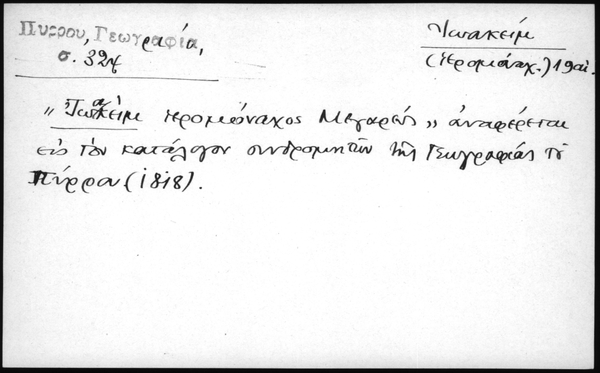 Πύρρου, Γεωγραφία,
σ. 324
Ἰωακείμ
(ἱερομόναχ.) 19αι.
„Ἰωακείμ ἱερομόναχος Μεγαρεύς„ ἀναφέρεται
εἰς τὸν κατάλογον συνδρομητῶν τῆς Γεωγραφίας τοῦ
Πύρρου (1818).